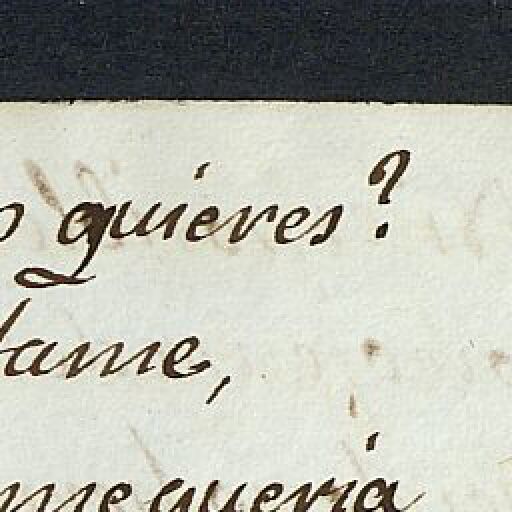 quieres?
tame,
me queria